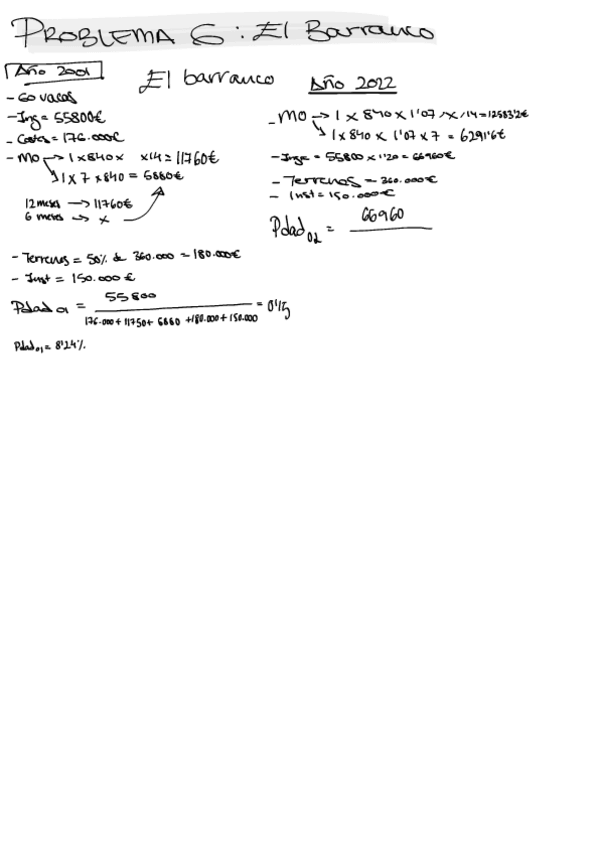 PROBLEMA 6: El Barranco
Año 2001
El barranco
- 60 vacas
- Ing = 55800€
- Costes = 176.000€
- MO → 1 x 840 x x14 = 11760€
↘ 1 x 7 x 840 = 5880€
12 meses → 11760€
6 meses → x
- Terrenos = 50% de 360.000 = 180.000€
- Inst = 150.000€
Pdad 01 = 55800
176.000 + 11750 + 6860 + 180.000 + 150.000
Pdad 01 = 8'24%
Año 2022
- MO → 1 x 840 x 1'07 x 14 = 12583'2€
↘ 1 x 840 x 1'07 x 7 = 6291'6€
- Ings = 55800 x 1'20 = 66960€
- Terrenos = 360.000€
- Inst = 150.000€
Pdad 02 = 66960